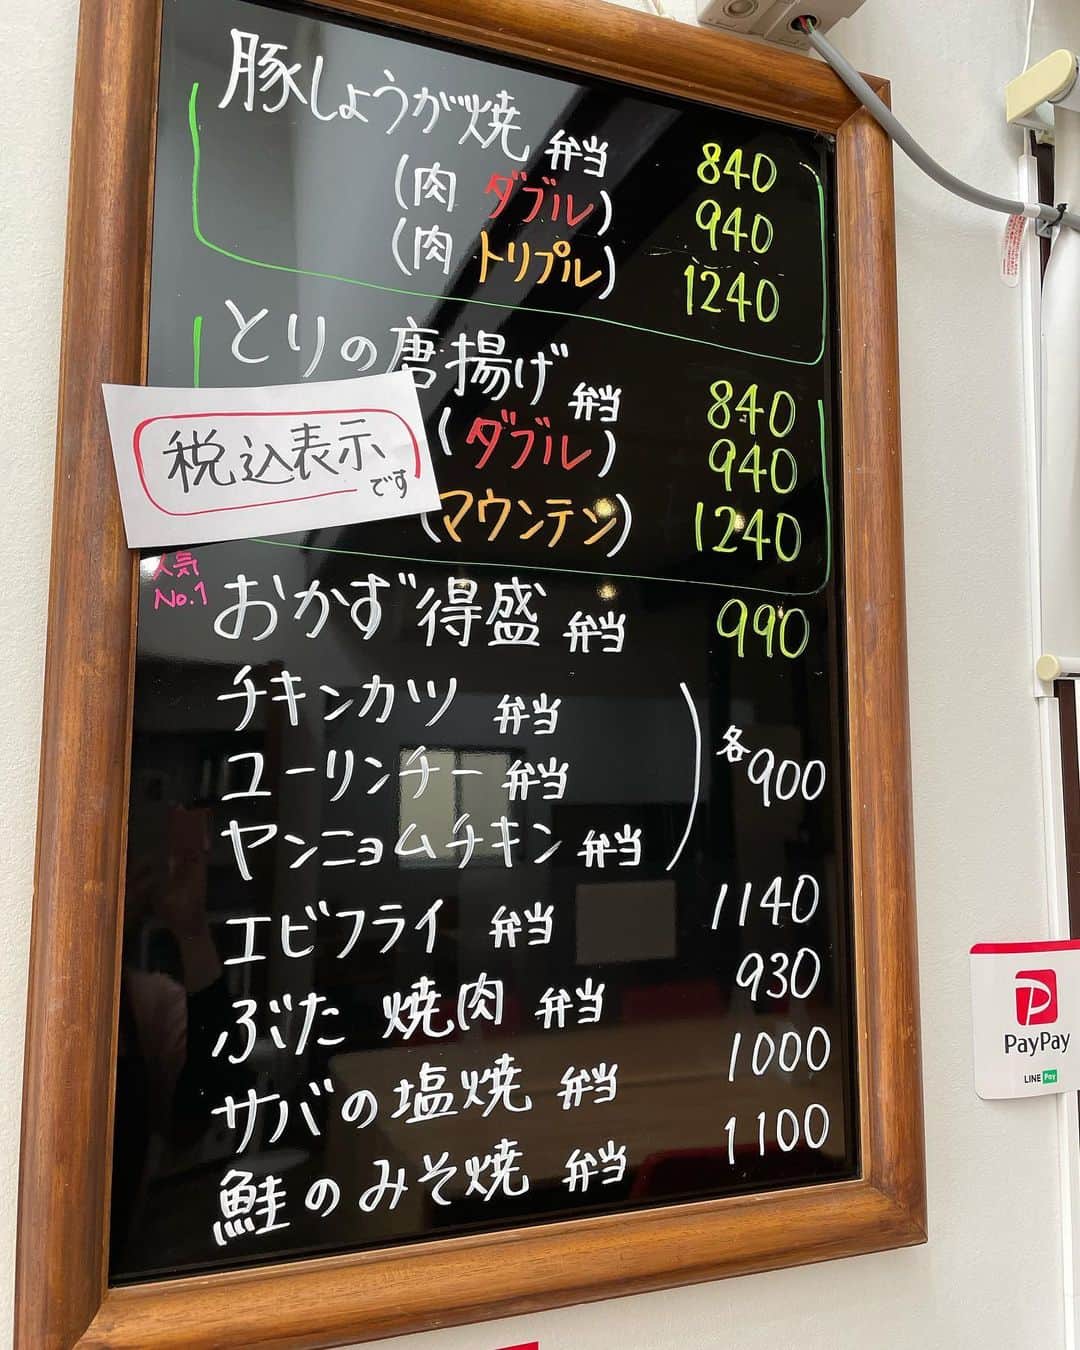 豚しょうが焼弁当 840
(肉 ダブル) 940
(肉 トリプル) 1240
とりの唐揚げ弁当 840
(ダブル) 940
(マウンテン) 1240
税込表示
です
人気
No.1
おかず得盛弁当 990
チキンカツ弁当
ユーリンチー弁当 各900
ヤンニョムチキン弁当
エビフライ弁当 1140
ぶた焼肉弁当 930
サバの塩焼弁当 1000
鮭のみそ焼弁当 1100
PayPay
LINE Pay